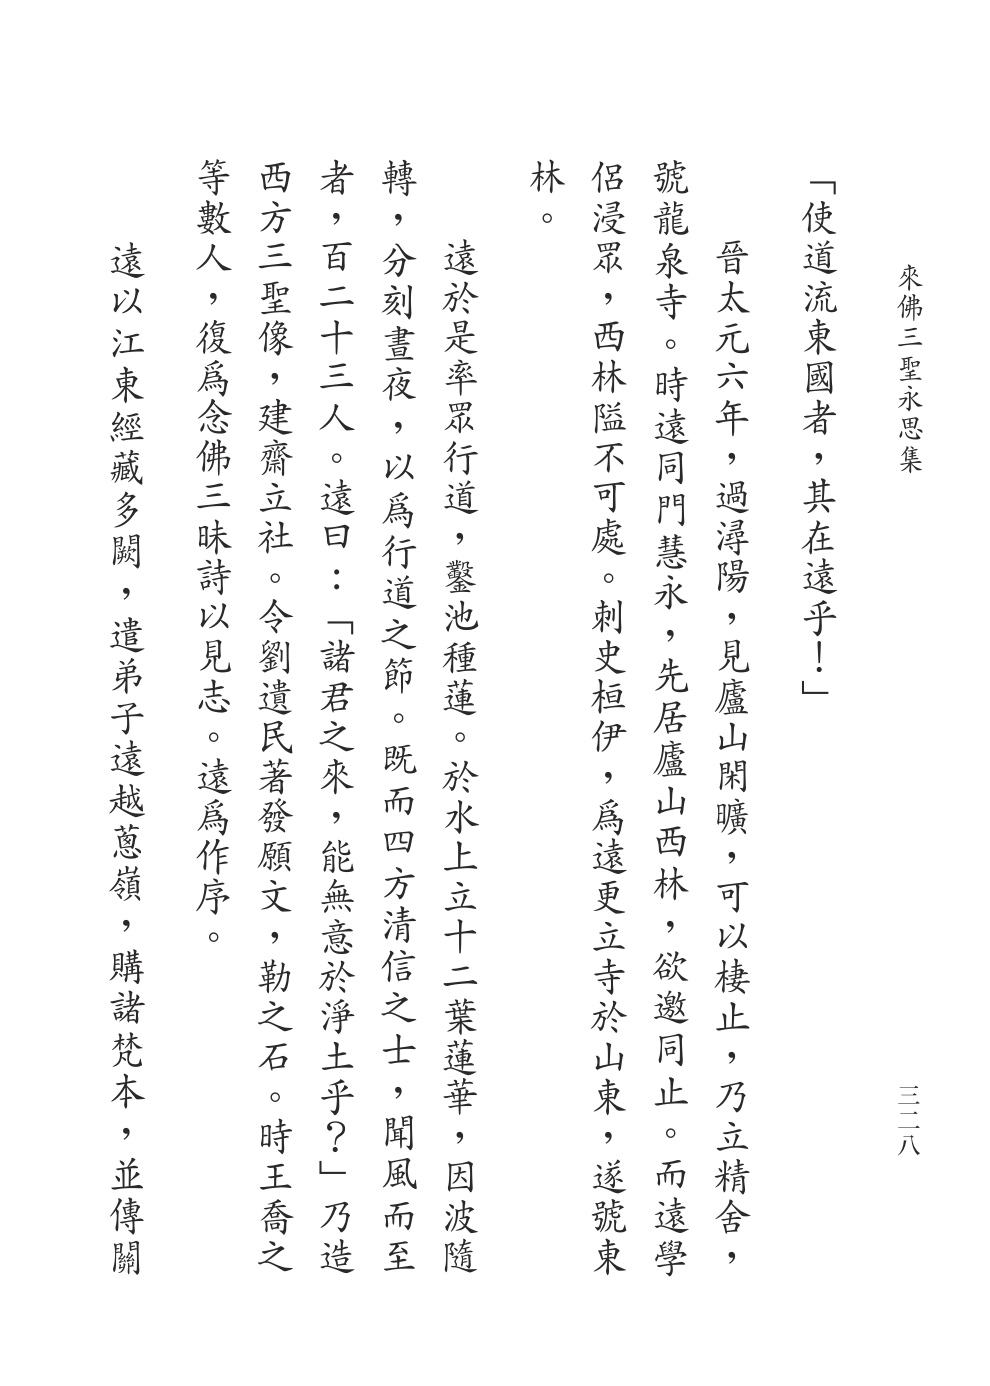 來佛三聖永思集
三二八
「使道流東國者，其在遠乎！」
晉太元六年，過潯陽，見廬山閑曠，可以棲止，乃立精舍，
號龍泉寺。時遠同門慧永，先居廬山西林，欲邀同止。而遠學
侶浸眾，西林隘不可處。刺史桓伊，爲遠更立寺於山東，遂號東
林。
遠於是率眾行道，鑿池種蓮。於水上立十二葉蓮華，因波隨
轉，分刻晝夜，以爲行道之節。既而四方清信之士，聞風而至
者，百二十三人。遠曰：「諸君之來，能無意於淨土乎？」乃造
西方三聖像，建齋立社。令劉遺民著發願文，勒之石。時王喬之
等數人，復爲念佛三昧詩以見志。遠爲作序。
遠以江東經藏多闕，遣弟子遠越蔥嶺，購諸梵本，並傳關